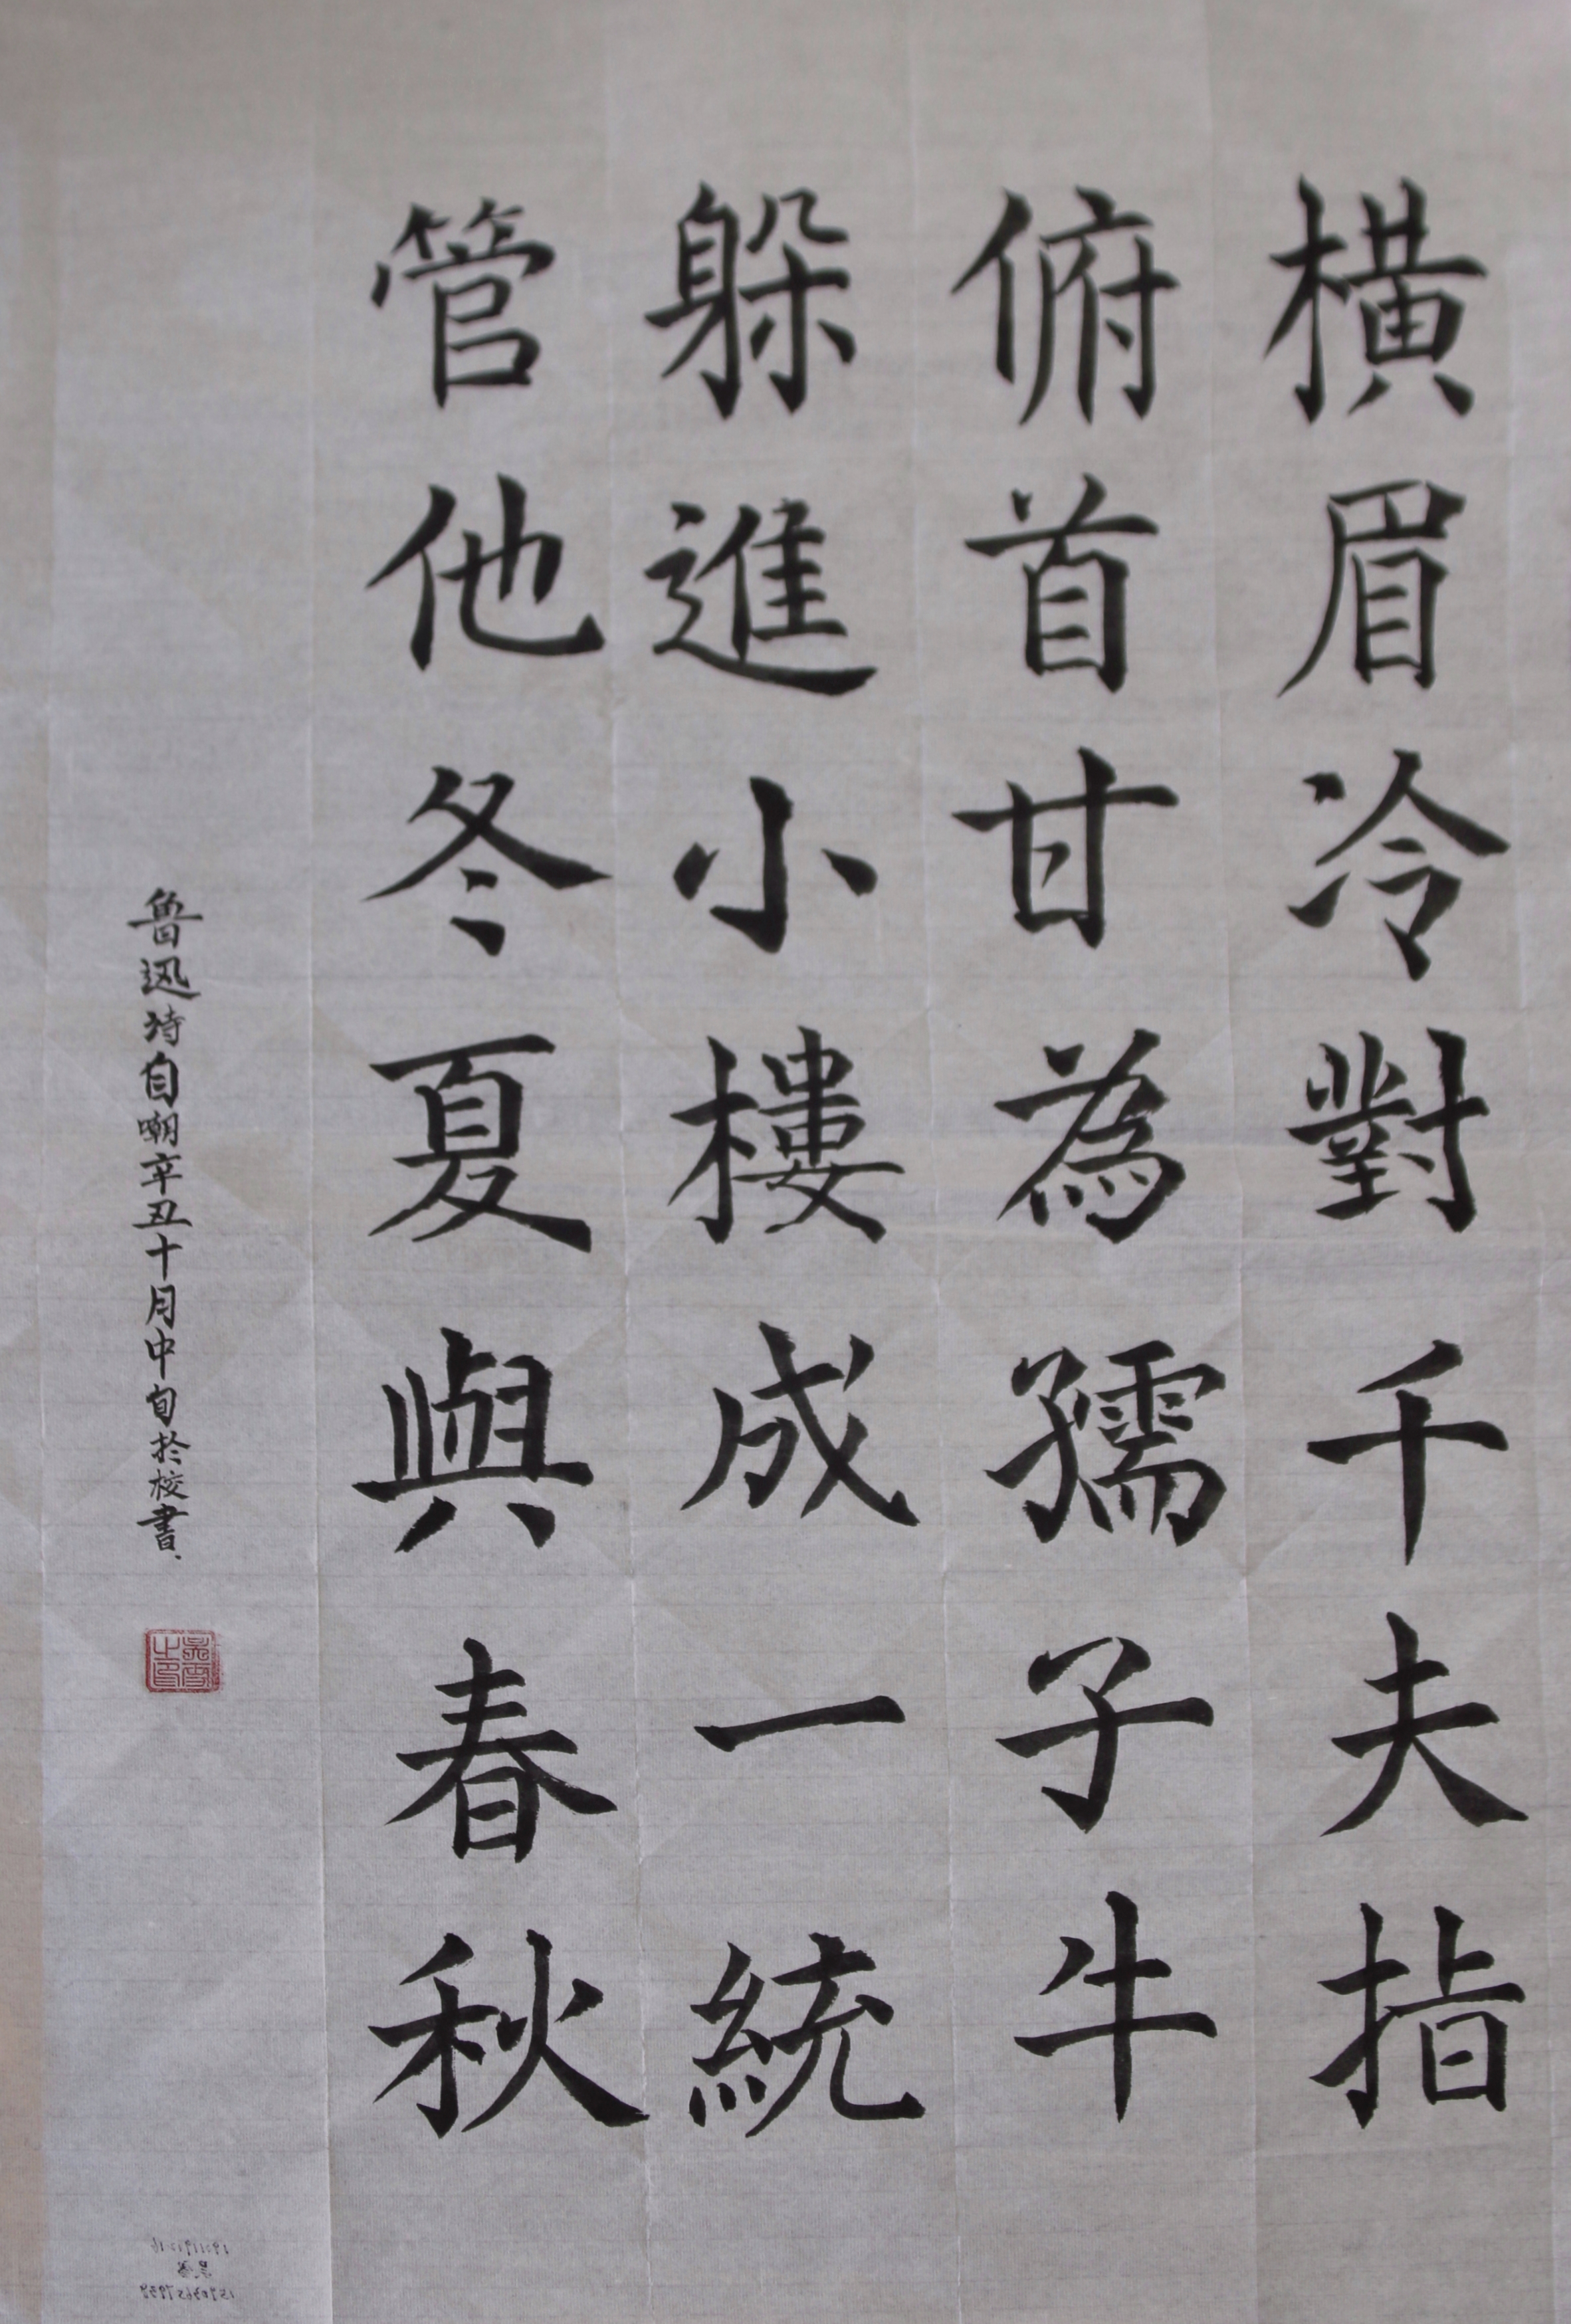 橫眉冷對千夫指
俯首甘為孺子牛
躲進小樓成一統
管他冬夏與春秋
魯迅詩自嘲辛丑十月中旬於校書